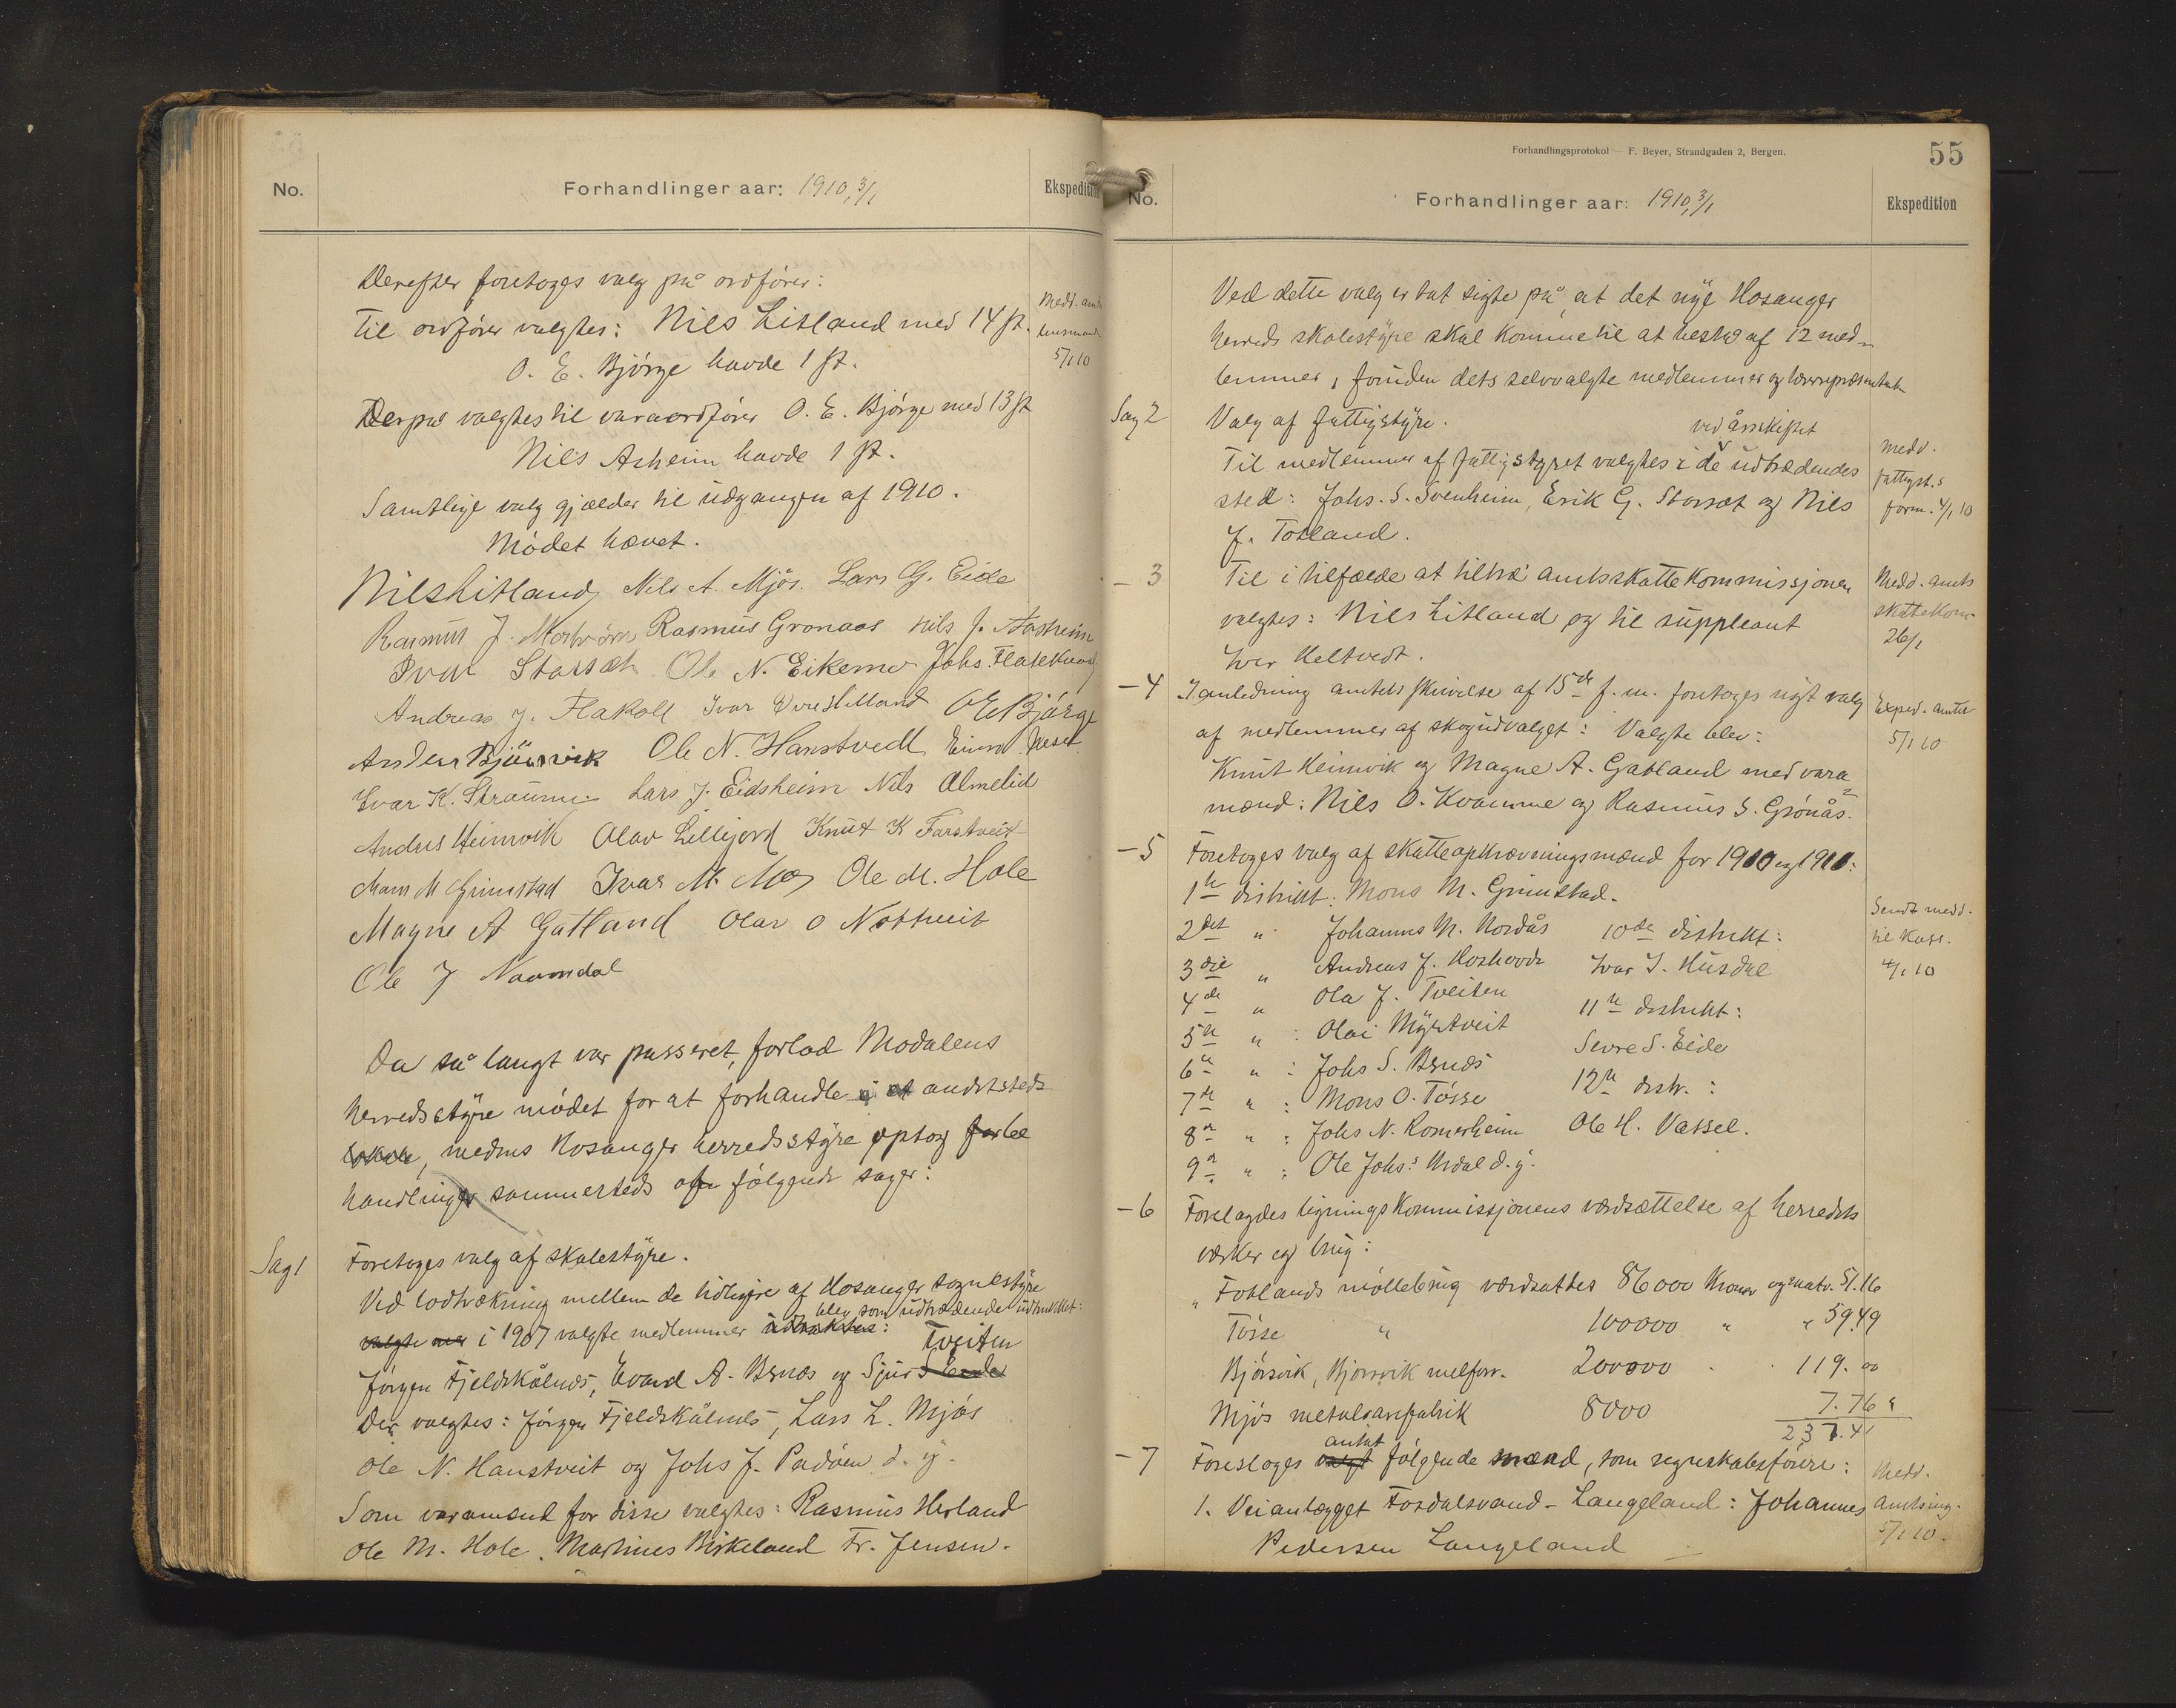 No.
Forhandlinger aar: 1910, 3/1
Ekspedition
Derefter foretoges valg på ordfører:
Til ordfører valgtes: Nils Litland med 14 st.
O. E. Bjørge havde 1 st.
Medd. amt
lensmand
5/1 10
Derpå valgtes til varaordfører O. E. Bjørge med 13 st
Nils Asheim havde 1 st.
Samtlige valg gjælder til udgangen af 1910.
Mødet hævet.
Nils Litland, Nils A. Mjøs. Lars G. Eide
Rasmus J. Rasmus Gronaas Nils J. Aasheim
Ivar Storsæt Ole N. Eikemo Johs. Flatekvaal
Andreas J. Flakoll Ivar OE Bjørge
Anders Bjørsvik Ole N. Hanstvedt Einar Neset
Ivar K. Straume Lars J. Eidsheim Nils Almelid
Andres Heimvik Olav Lillejord Knut K Farstveit
Mons M Grimstad Ivar M. Mo Ole M. Hole
Magne A Gatland Olav O Nottveit
Ole J Naamdal
Da så langt var passeret, forlod Modalens
herredsstyre mødet for at forhandle i et andetsteds
lokale, medens Hosanger herredsstyre optog forbe
handlinger sammesteds om følgende sager:
Sag 1
Foretoges valg af skolestyre.
Ved lodtrækning mellem de tidligere af Hosanger sognestyre
blev som udtrædende udtrukket:
valgte med i 1907 valgte medlemmer udtraktes:
Tveiten
Jørgen Fjeldskålnes, Evard A. Bsnes og Sjur S Eide
Der valgtes: Jørgen Fjeldskålnes, Lars L. Mjøs
Ole N. Hanstveit og Johs J. Padøen d. y.
Som varamænd for disse valgtes: Rasmus Herland
Ole M. Hole. Martines Birkeland Fr. Jensen.
Forhandlingsprotokol — F. Beyer, Strandgaden 2, Bergen.
55
No.
Forhandlinger aar: 1910, 3/1
Ekspedition
Ved dette valg er tat sigte på, at det nye Hosanger
herreds skolestyre skal komme til at bestå af 12 med-
lemmer, foruden dets selvvalgte medlemmer og lærerrepræsentant
Sag 2
Valg af fattigstyre.
ved årsskiftet
Til medlemmer af fattigstyret valgtes i de udtrædendes
sted: Johs. S. Svenheim, Erik G. Storsæt og Nils
J. Totland.
Medd.
fattigst.s
form. 4/1 10
— 3
Til i tilfælde at tiltræ amtsskattekommissjonen
valgtes: Nils Litland og til suppleant
Iver Heltvedt.
Medd. amts
skattekom.
26/1
— 4
I anledning amtets skrivelse af 15de f. m. foretoges nyt valg
af medlemmer af skogudvalget: Valgte blev:
Knut Heimvik og Magne A. Gatland med vara
mænd: Nils O. Kvamme og Rasmus S. Grønås.
Exped. amtet
5/1 10
— 5
Foretoges valg af skatteopkrævningsmænd for 1910 og 1911:
1te distrikt: Mons M. Grimstad.
2det " Johannes M. Nordås 10de distrikt:
3die " Andreas J. Ivar I. Husdal
4de " Ola J. Tveiten 11te distrikt:
5te " : Olai Myrtveit Sevre S. Eide
6te " : Johs S. Bsnes 12te distr. :
7de " : Mons O. Tösse
8de " : Johs N. Romerheim Ole H. Vassel.
9de " : Ole Johs.s Urdal d. y.
Sendt medd.
til kass.
4/1 10
— 6
Forelagdes ligningskommissjonens værdsættelse af herredets
værker og brug:
" Fotlands møllebrug værdsattes 86000 Kroner og matr. 51.16
Tösse " 100000 " " 59.49
Bjørsvik, Bjørsvik melforr. 200000 " " 119.00
Mjøs metalvarefabrik 8000 7.76
237.41
— 7
antat
Foresloges valgt følgende mænd, som regnskabsførere:
1. Veianlægget Fosdalsvand – Langeland: Johannes
Pedersen Langeland
Medd.
amtsing.
5/1 10.